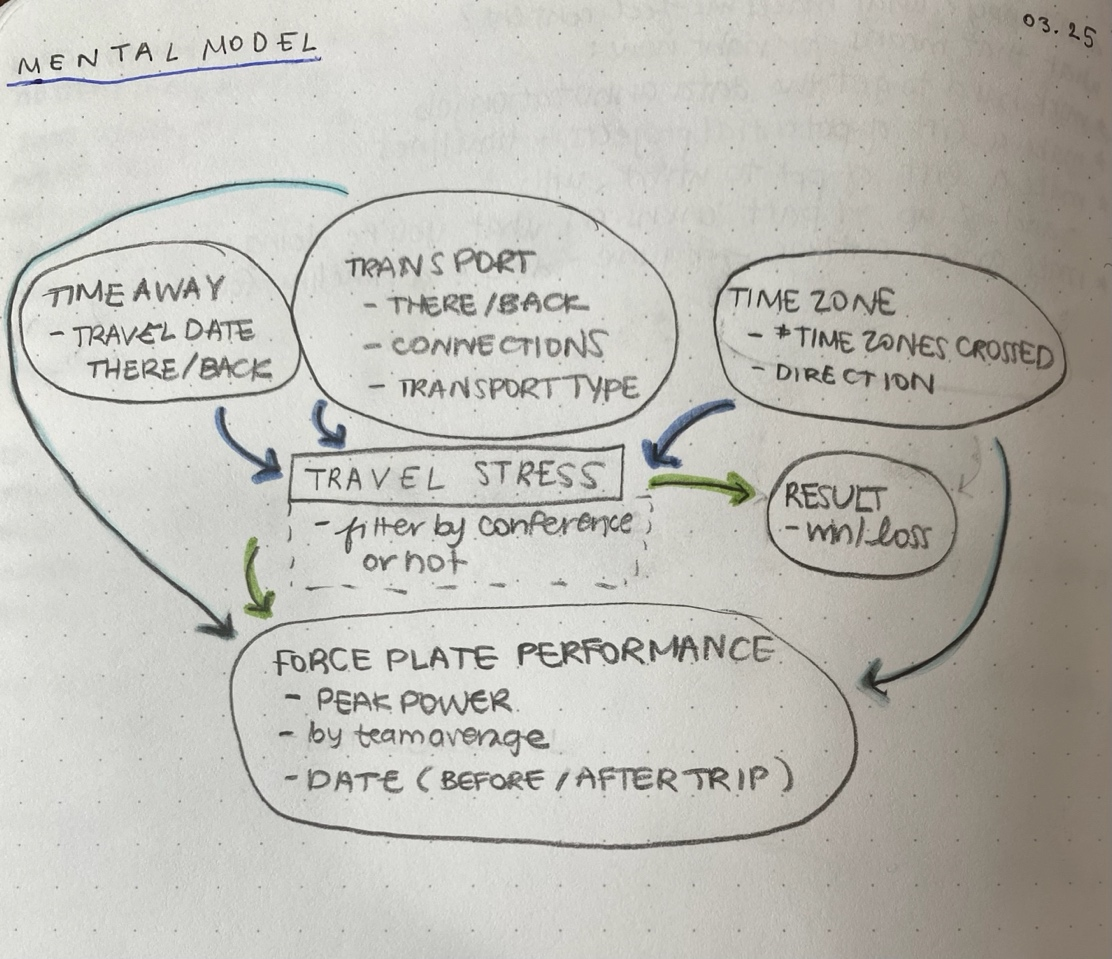 MENTAL MODEL
03.25
TIME AWAY
- TRAVEL DATE
THERE/BACK
TRANSPORT
- THERE/BACK
- CONNECTIONS
- TRANSPORT TYPE
TIME ZONE
- #TIME ZONES CROSSED
- DIRECTION
TRAVEL STRESS
- filter by conference
or not
RESULT
- win/loss
FORCE PLATE PERFORMANCE
- PEAK POWER
- by team average
- DATE (BEFORE / AFTER TRIP)